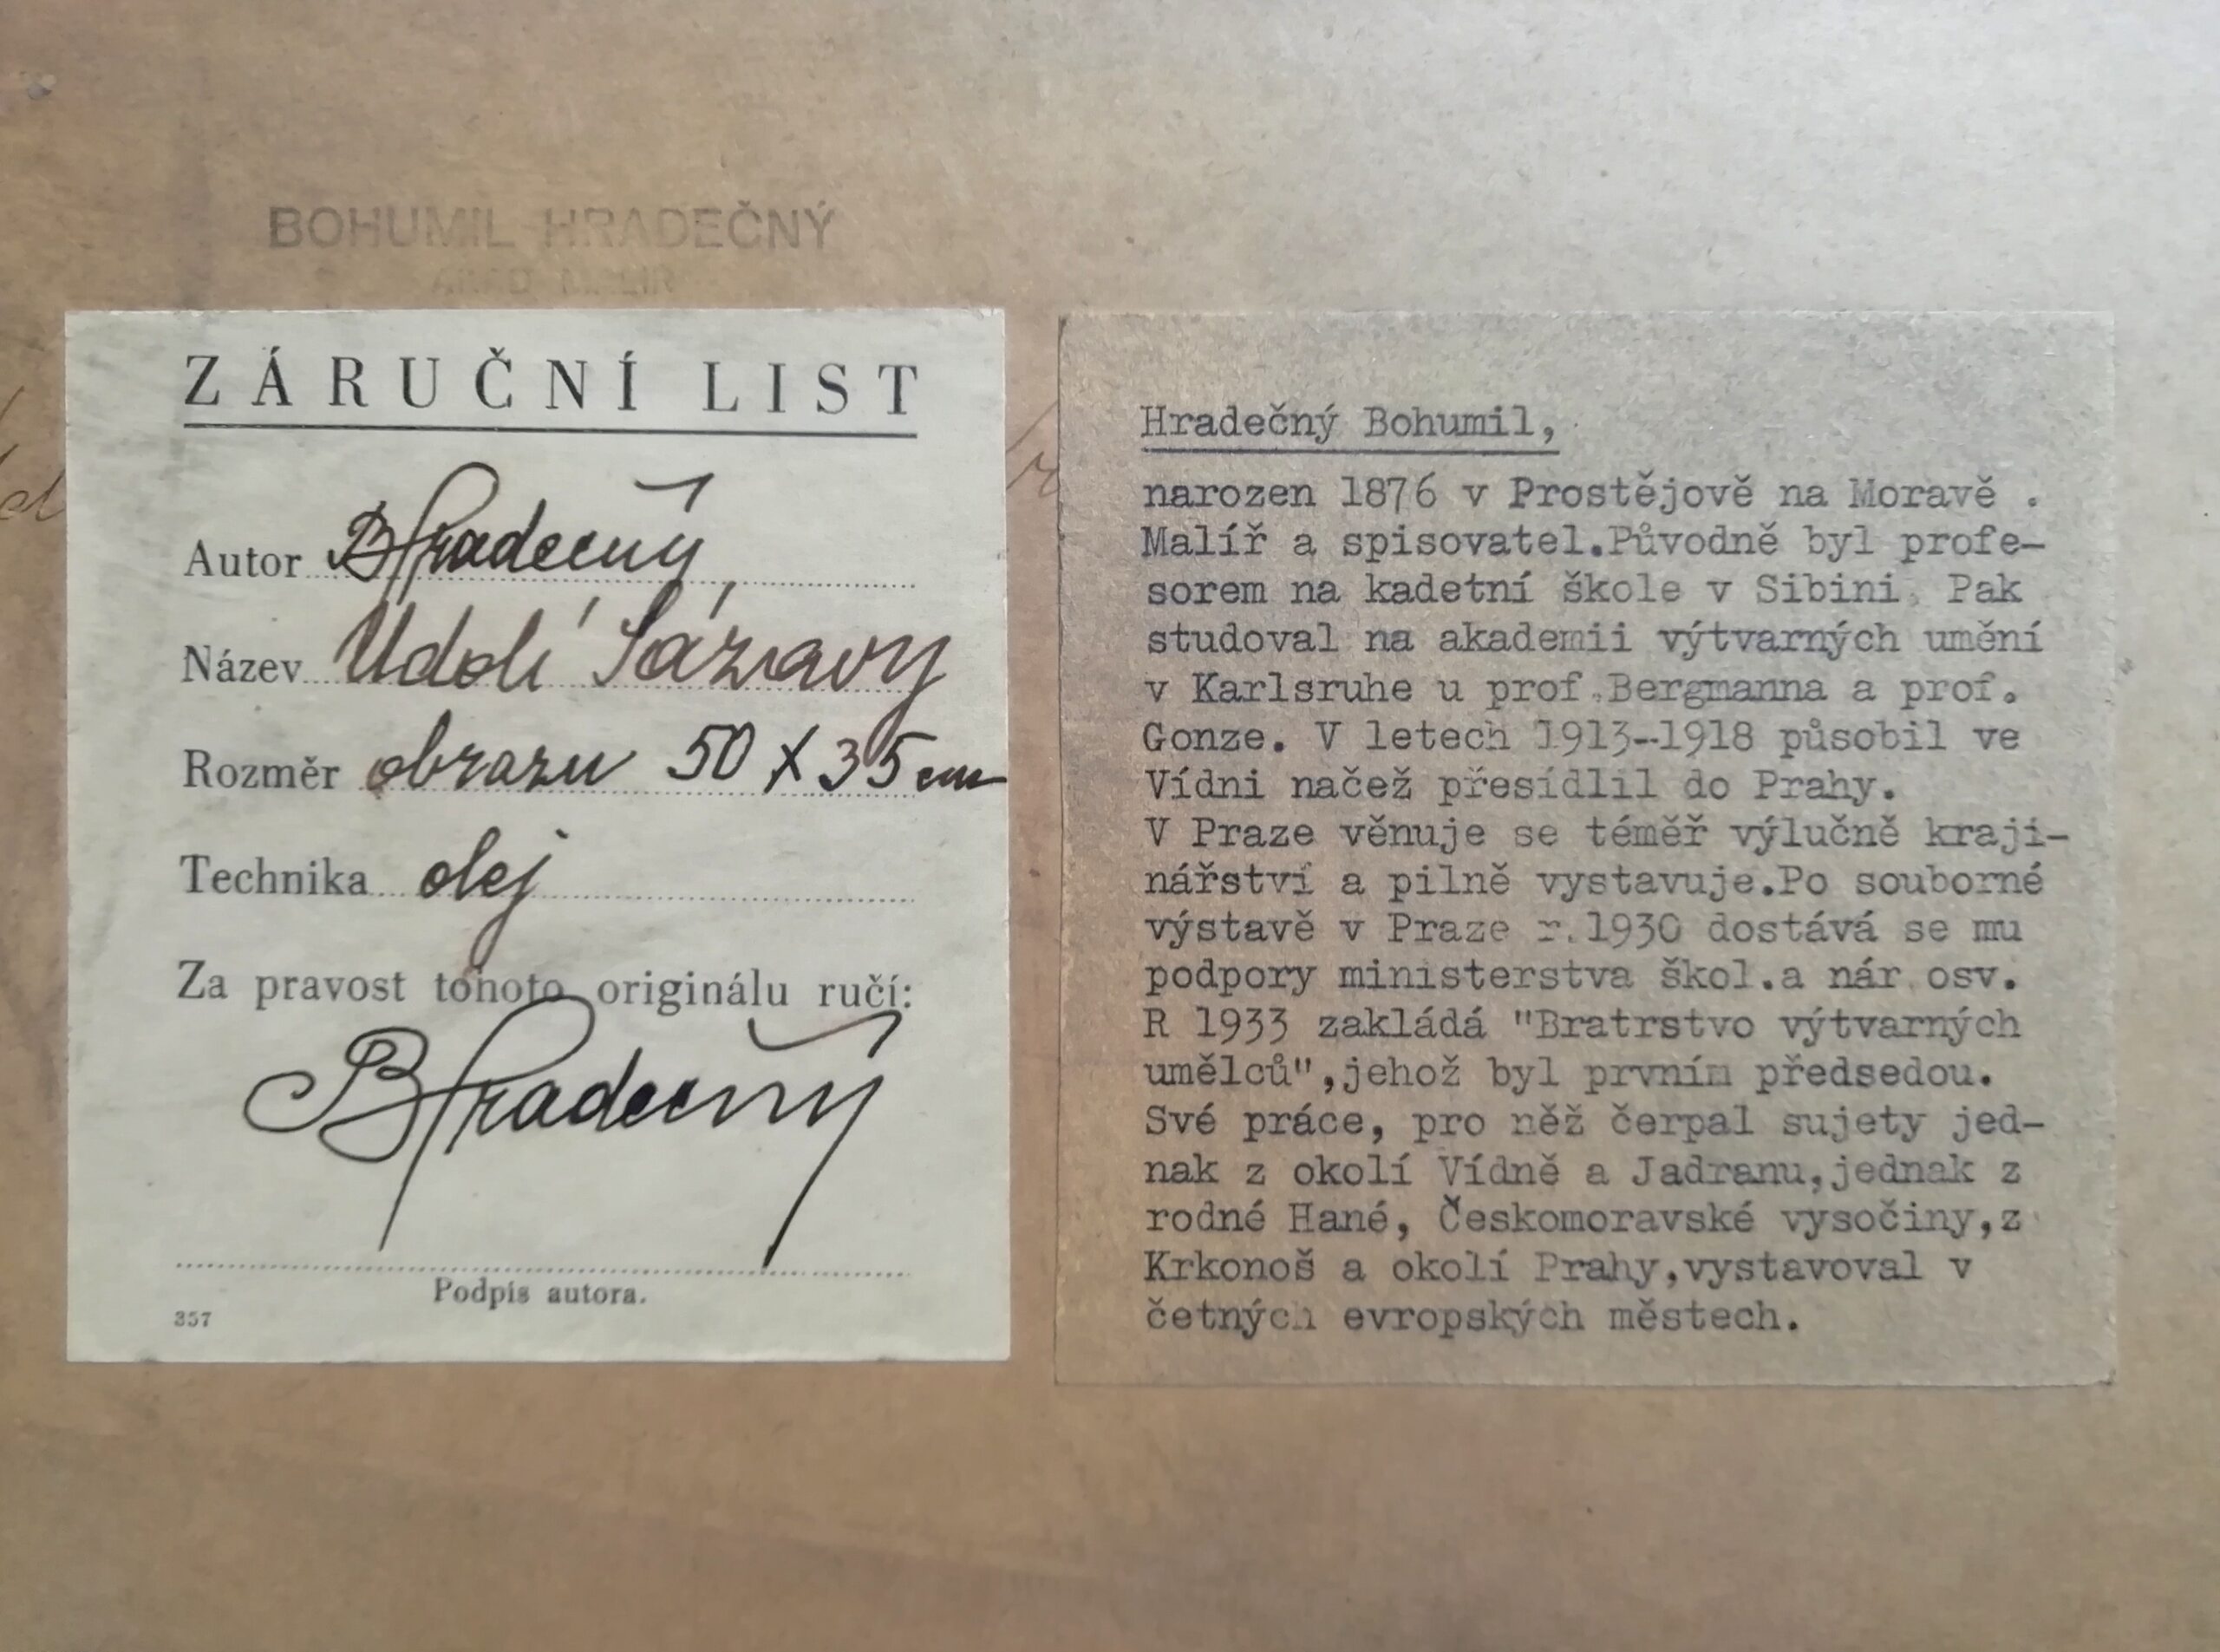 BOHUMIL HRADEČNÝ
ZÁRUČNÍ LIST
Autor BHradečný
Název Údolí Sázavy
Rozměr obrazu 50 x 35 cm
Technika olej
Za pravost tohoto originálu ručí:
BHradečný
Podpis autora.
357
Hradečný Bohumil,
narozen 1876 v Prostějově na Moravě .
Malíř a spisovatel.Původně byl profe-
sorem na kadetní škole v Sibini. Pak
studoval na akademii výtvarných umění
v Karlsruhe u prof.Bergmanna a prof.
Gonze. V letech 1913--1918 působil ve
Vídni načež přesídlil do Prahy.
V Praze věnuje se téměř výlučně kraji-
nářství a pilně vystavuje.Po souborné
výstavě v Praze r.1930 dostává se mu
podpory ministerstva škol.a nár.osv.
R 1933 zakládá "Bratrstvo výtvarných
umělců",jehož byl prvním předsedou.
Své práce, pro něž čerpal sujety jed-
nak z okolí Vídně a Jadranu,jednak z
rodné Hané, Českomoravské vysočiny,z
Krkonoš a okolí Prahy,vystavoval v
četných evropských městech.